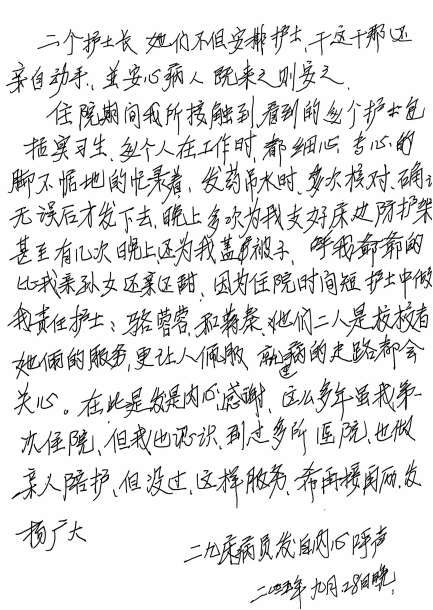 二个护士长她们不但安排护士,干这干那还
亲自动手,并安心病人既来之则安之.
住院期间我所接触到,看到的每个护士包
括实习生,每个人在工作时,都细心,专心的
脚不惦地的忙录着,发药吊水时,多次核对,确认
无误后才发下去,晚上多次为我支好床边防护架
甚至有几次晚上还为我盖好被子,呼我爷爷的
比我亲孙女还亲还甜,因为住院时间短护士中做
我责任护士:骆蓉蓉,和,她们二人是
她俩的服务,更让人佩服,就的走路都会
关心。在此是发是内心感谢,这么多年虽我第一
次住院,但我也认识,到过多所医院,也做
亲人陪护,但没过,这样服务,希再接再励,发
扬广大
二九床病员发自内心呼声
二〇年九月28日晚,